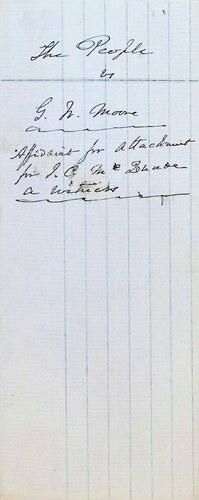 The People
vs
G. N. Moore
Affidavit for attachment
for J. C. Mc
a witness